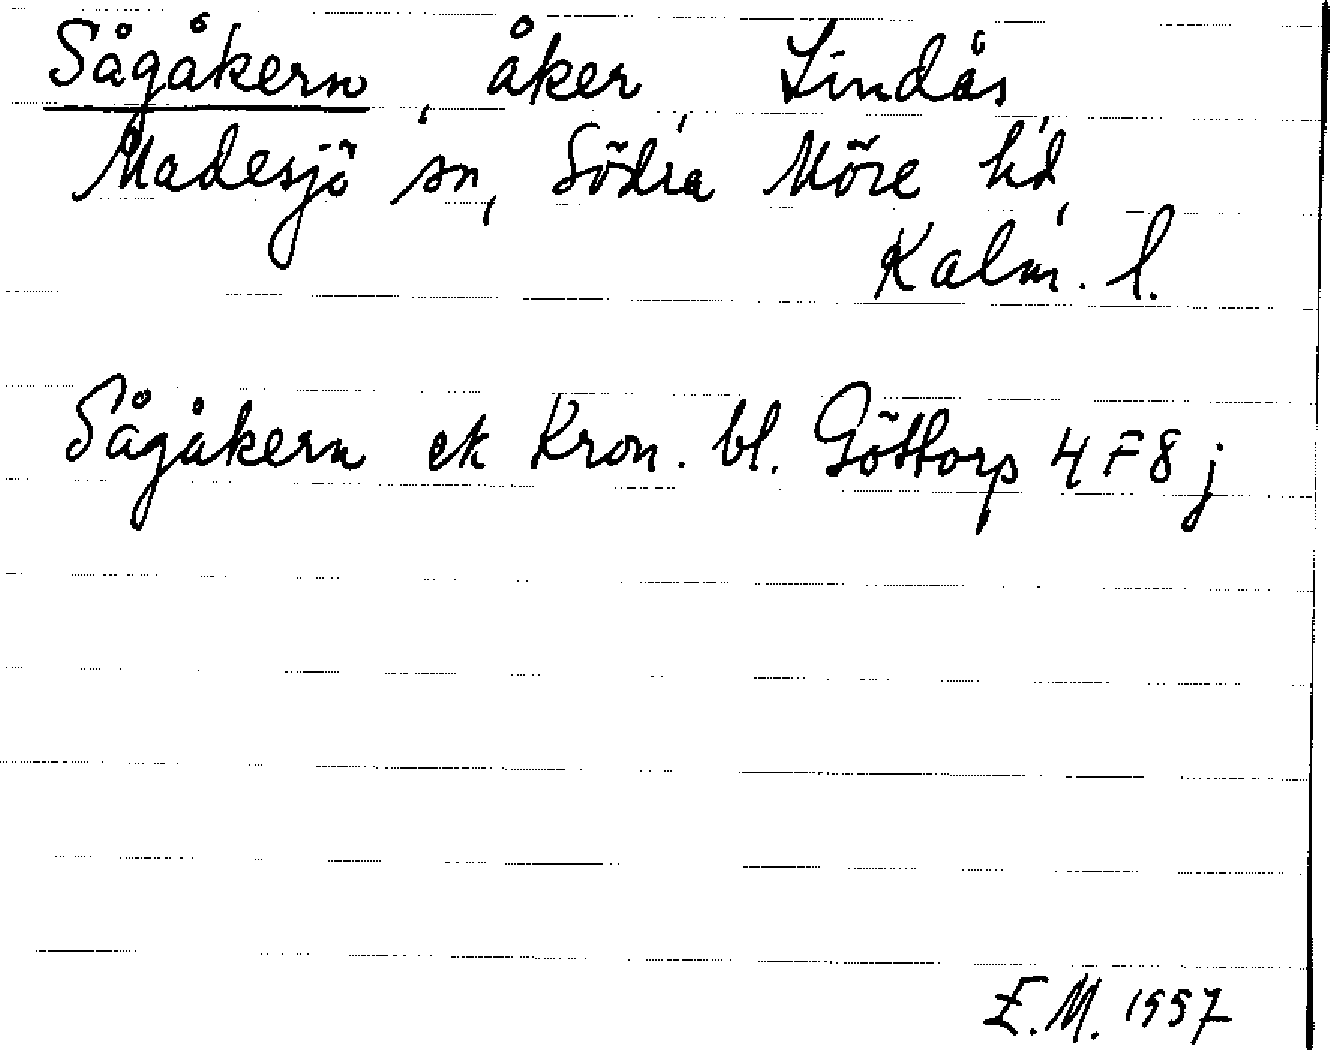 Sågåkern, åker, Lindås,
Madesjö sn, Södra Möre hd,
Kalm. l.
Sågåkern ek Kron. bl. Göttorp 4F8j
E.M. 1997